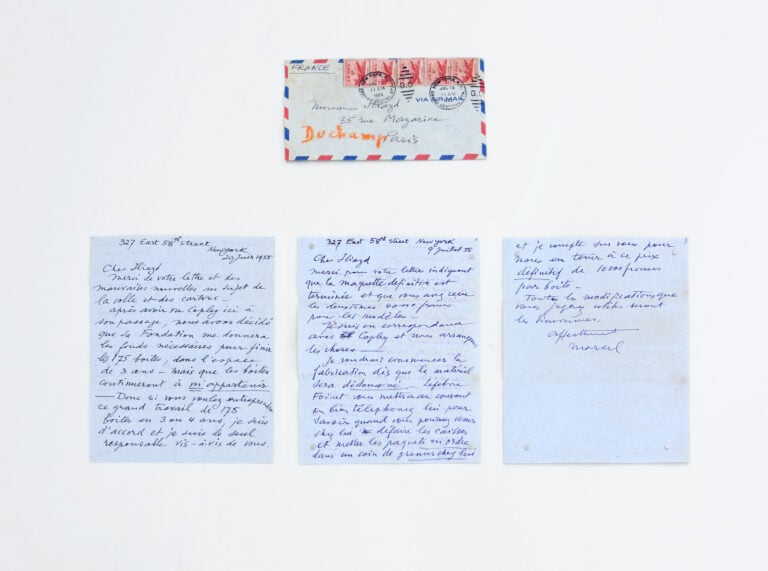 FRANCE
VIA AIR MAIL
Monsieur Iliazd
35 rue Mazarine
Duchamp Paris
327 East 58th Street
New York
20 Juin 1955
Cher Iliazd
Merci de votre lettre et des
mauvaises nouvelles au sujet de
la colle et des cartons –
après avoir vu Copley ici à
son passage, nous avons décidé
que la Fondation me donnera
les fonds nécessaires pour finir
les 175 boites, dans l'espace
de 3 ans – mais que les boites
continueront à m'appartenir
— Donc si vous voulez entreprendre
ce grand travail de 175
boites en 3 ou 4 ans, je suis
d'accord et je suis le seul
responsable vis-à-vis de vous.
327 East 58th Street New York
9 Juillet 55
Cher Iliazd
Merci pour votre lettre indiquant
que la maquette définitive est
terminée et que vous avez reçu
les deuxièmes 40000 francs
pour les modèles –
Je suis en correspondance
avec Copley et nous arrangeons
les choses —
Je voudrais commencer la
fabrication dès que le matériel
sera dédouané – Lefebvre
Foinet vous mettra au courant
ou bien téléphonez lui pour
savoir quand vous pourrez venir
chez lui défaire les caisses
et mettre les paquets en ordre
dans un coin de grenier chez lui
3
et je compte sur vous pour
nous en tenir à ce prix
définitif de 10000 francs
par boite –
Toutes les modifications que
vous jugerez utiles seront
les bienvenues.
Affectueusement
Marcel